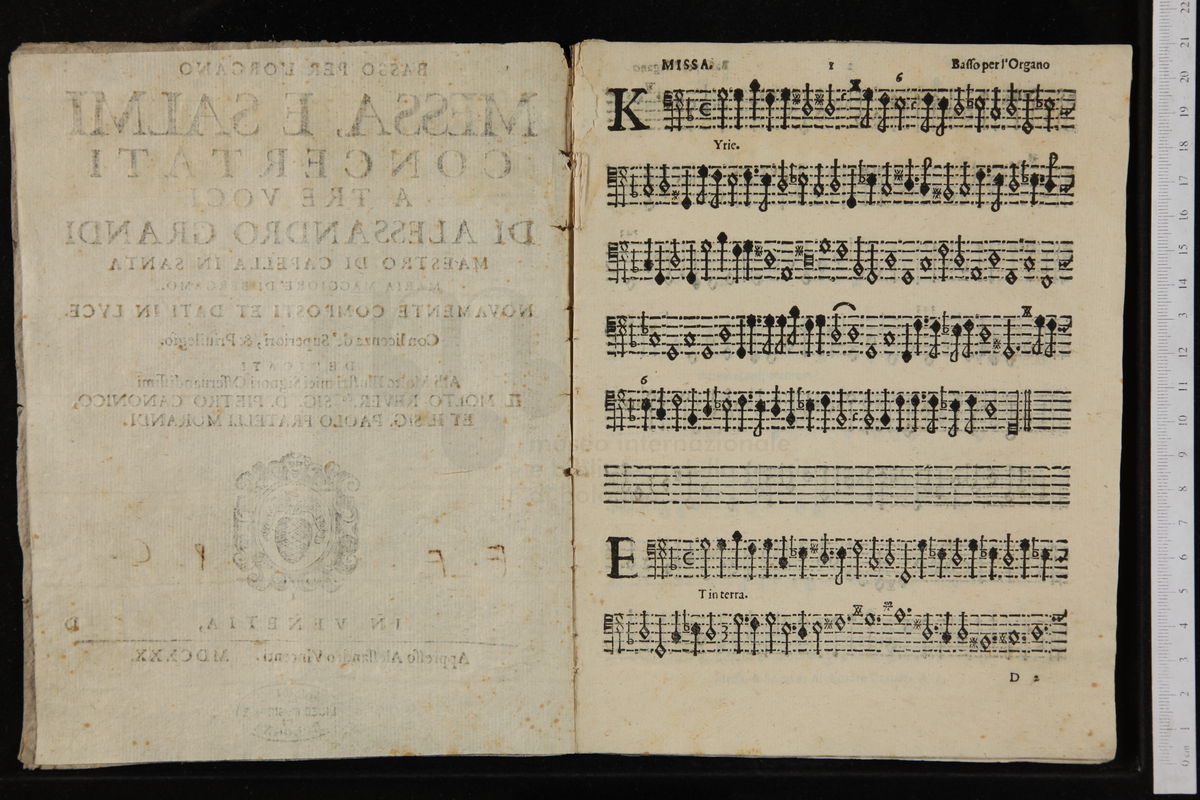 BASSO PER L'ORGANO
MESSA, E SALMI
CONCERTATI
A TRE VOCI
DI ALESSANDRO GRANDI
MAESTRO DI CAPELLA IN SANTA
MARIA MAGGIORE DI BERGAMO.
NOVAMENTE COMPOSTI ET DATI IN LVCE.
Con licenza de' Superiori, & Priuilegio.
DEDICATI
Alli Molto Illustri miei Signori Osseruandissimi
IL MOLTO REVER. SIG. D. PIETRO CANONICO,
ET IL SIG. PAOLO FRATELLI MORANDI.
IN VENETIA,
D
Appresso Alessandro Vincenti. MDCXXX.
MISSA. 1 Basso per l'Organo
6
K
Yrie.
6
museo internazionale
E
T in terra.
D 2